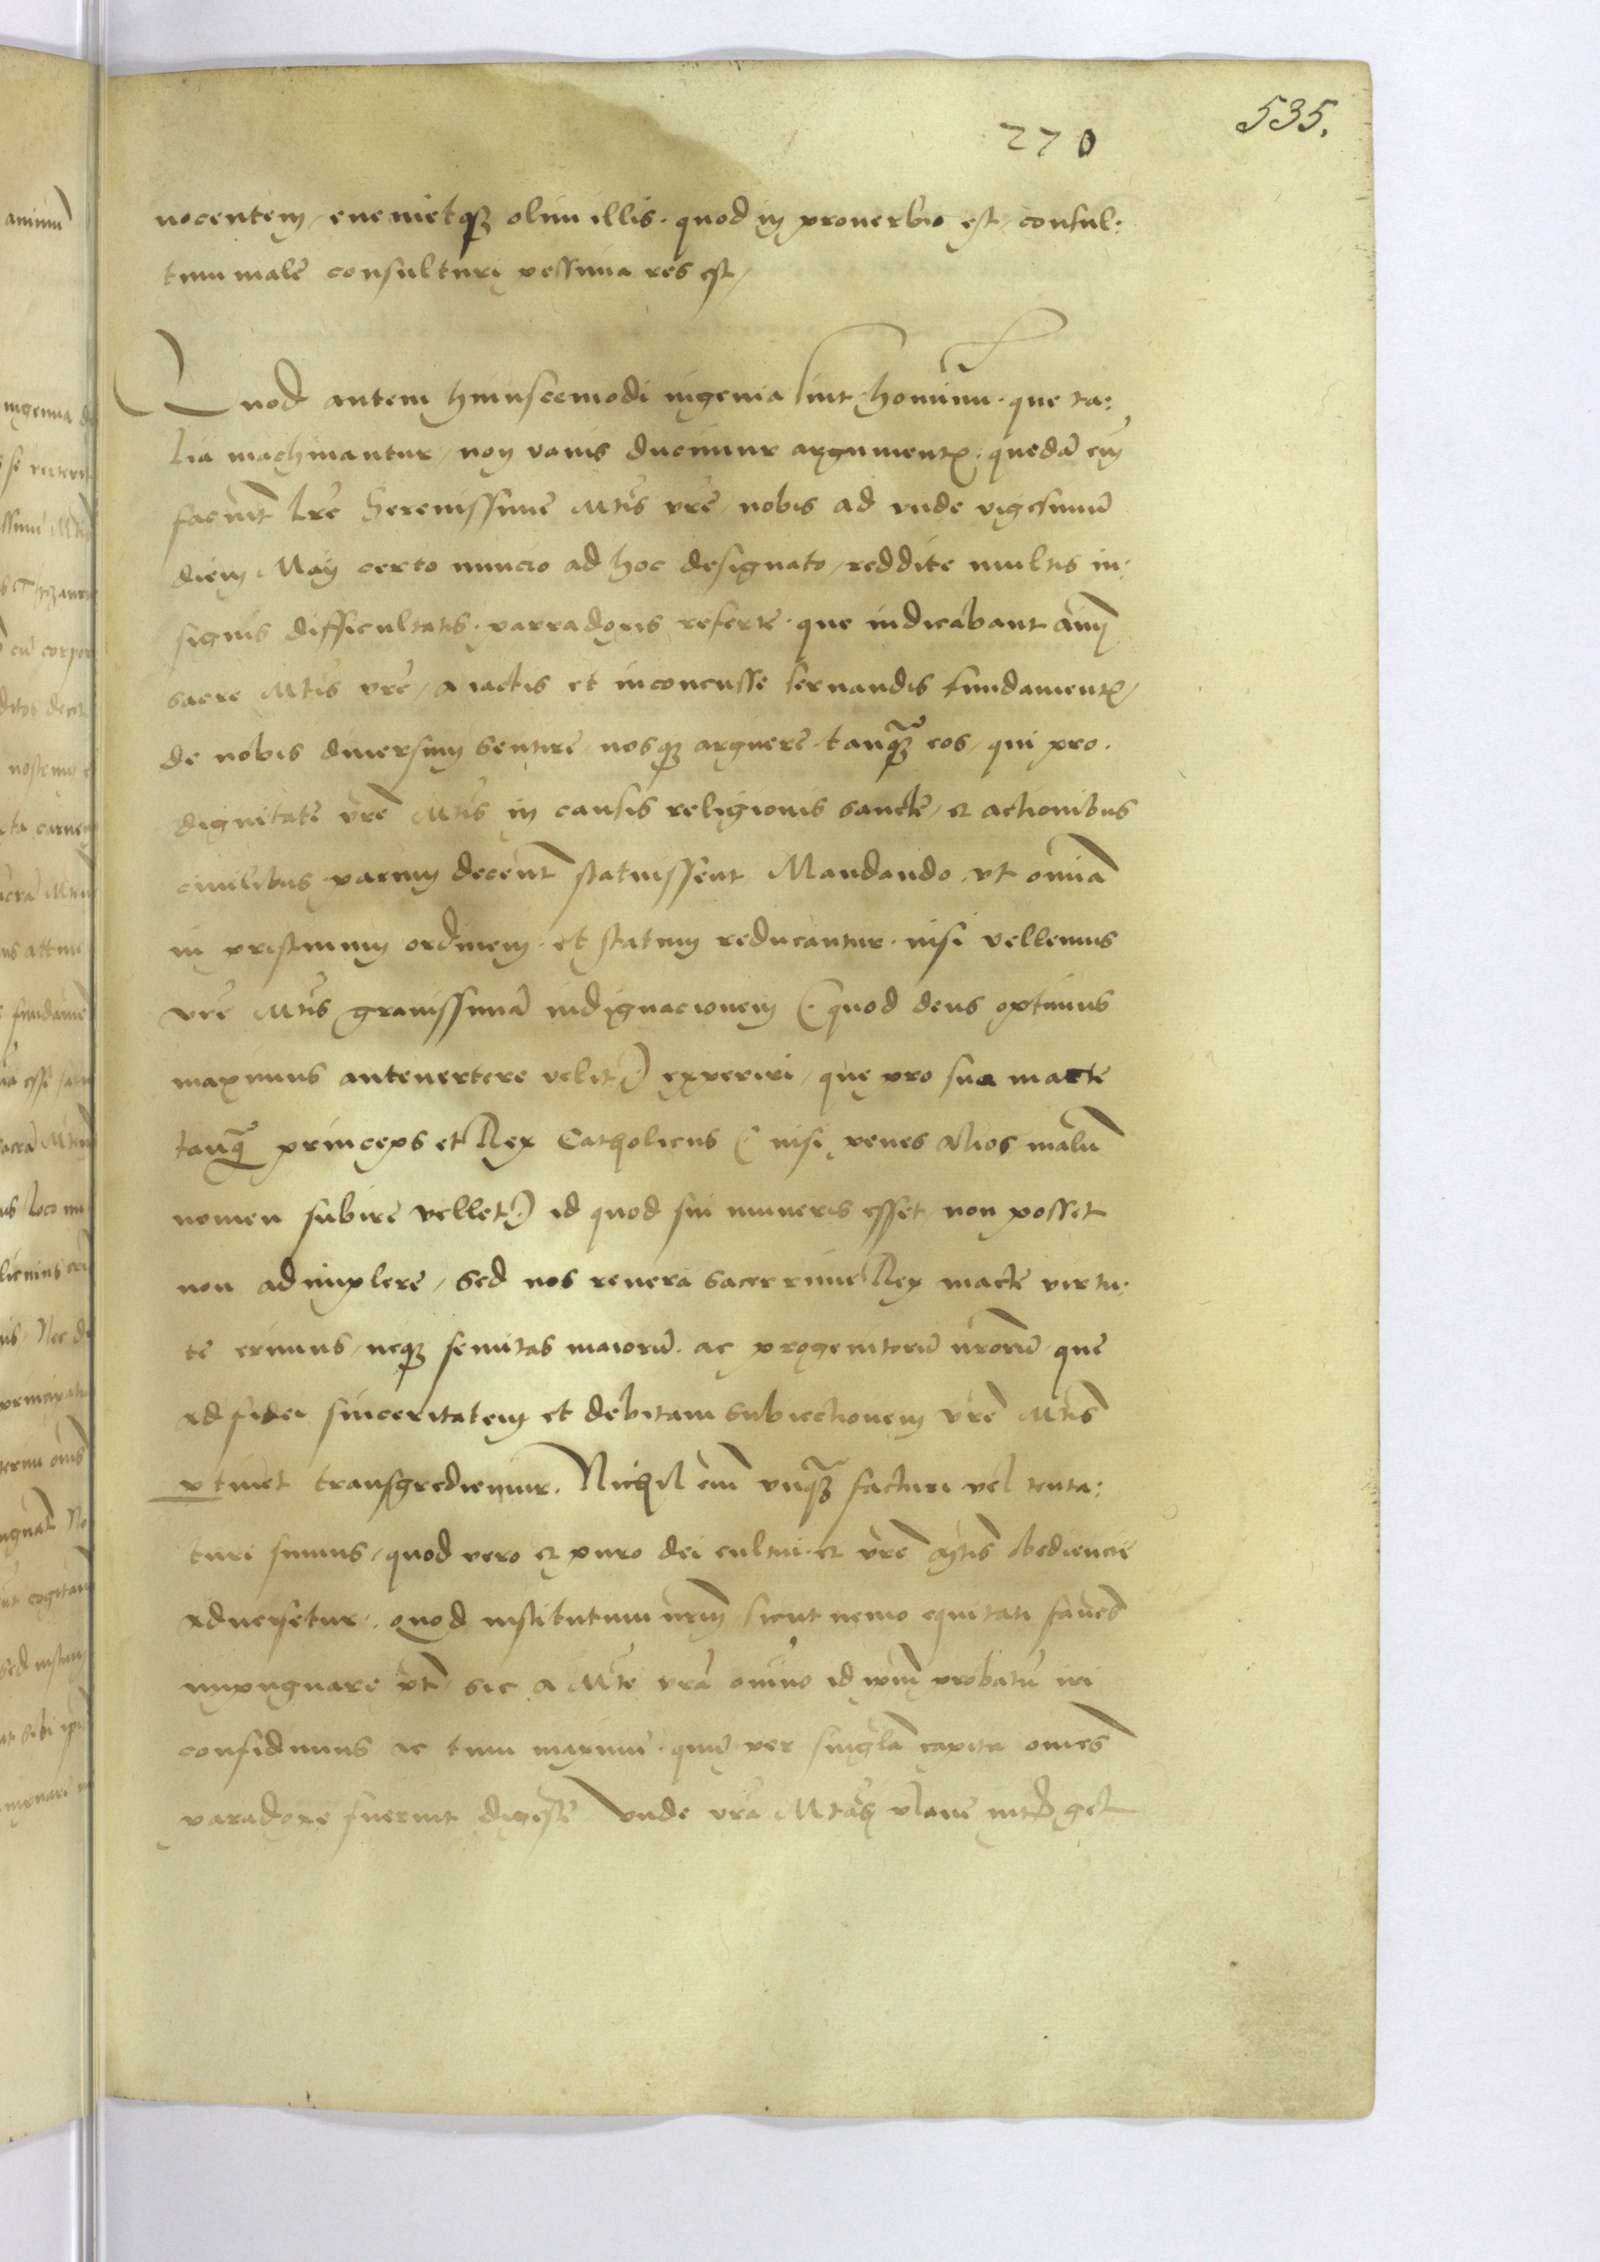 535.
270
nocentem, evenietq3 olim illis. quod in proverbio est, consul:
tum male consulturi pessima res est,
Quod autem huiuscemodi ingenia sint hominū. que ta:
lia machinantur, non vanis ducimur argumentis: quedā em̄
faciūt lr̄e Serenissime Mtis vr̄e, nobis ad unde vigesimū
diem Maij certo nuncio ad hoc designato, reddite multis in:
signis difficultatis. parradoxis referte. que indicabant aīm̄
sacre Mtis vr̄e, a iactis et inconcusse servandis fundamentis,
de nobis diversum sentire, nosq3 arguere. tanq̄3 eos, qui pro.
dignitate vr̄e Mtis in causis religionis sancte, et actionibus
civilibus parum decenter statuissent Mandando ut omnīa
in pristinum ordinem. et statum reducantur. nisi vellemus
vr̄e Mtis gravissimā indignacionem (: quod deus optimus
maximus antevertere velit:) experiri, que pro sua maiestate
tanq̄ princeps et Rex Catholicus (: nisi penes alios malū
nomen subire vellet:) id quod sui muneris esset non posset
non adimplere, Sed nos revera sacerrime Rex macte virtu:
te erimus, neq3 semitas maiorū. ac progenitorū nr̄orū que
ad fidei sinceritatem et debitam subiectionem vr̄e Mtis
ptinet transgrediemur. Nichil em̄ unq̄3 facturi vel tenta:
turi sumus, quod vero et puro dei cultui. et vr̄e Mtis obediencie
adversetur. quod institutum nr̄m̄ sicut nemo equitati favēs
impugnare pt̄ sic a Mte vr̄a omīno id ipm̄ probatū iri
confidimus ac tum maxime. quū per sinḡla capita omnes
paradoxe fuerint digeste Unde vr̄a Mtas plane